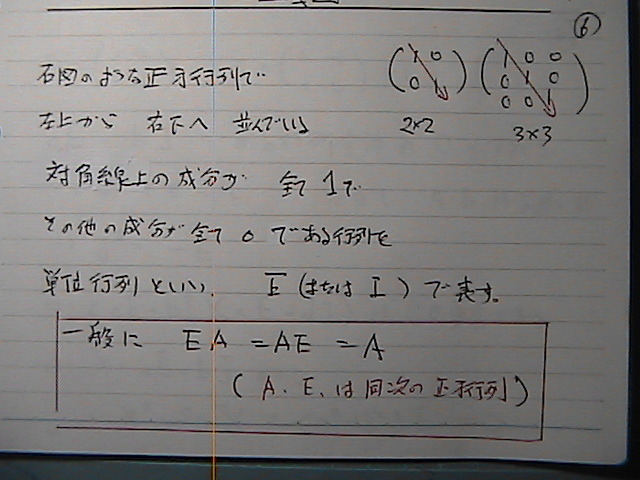 ⑥
右図のような正方行列で
(1 0
0 1)
(1 0 0
0 1 0
0 0 1)
左上から 右下へ 並んでいる
2×2
3×3
対角線上の成分が 全て 1で
その他の成分が全て 0 である行列を
単位行列といい、 E (または I ) で表す。
一般に EA = AE = A
( A、E、は同次の正方行列 )